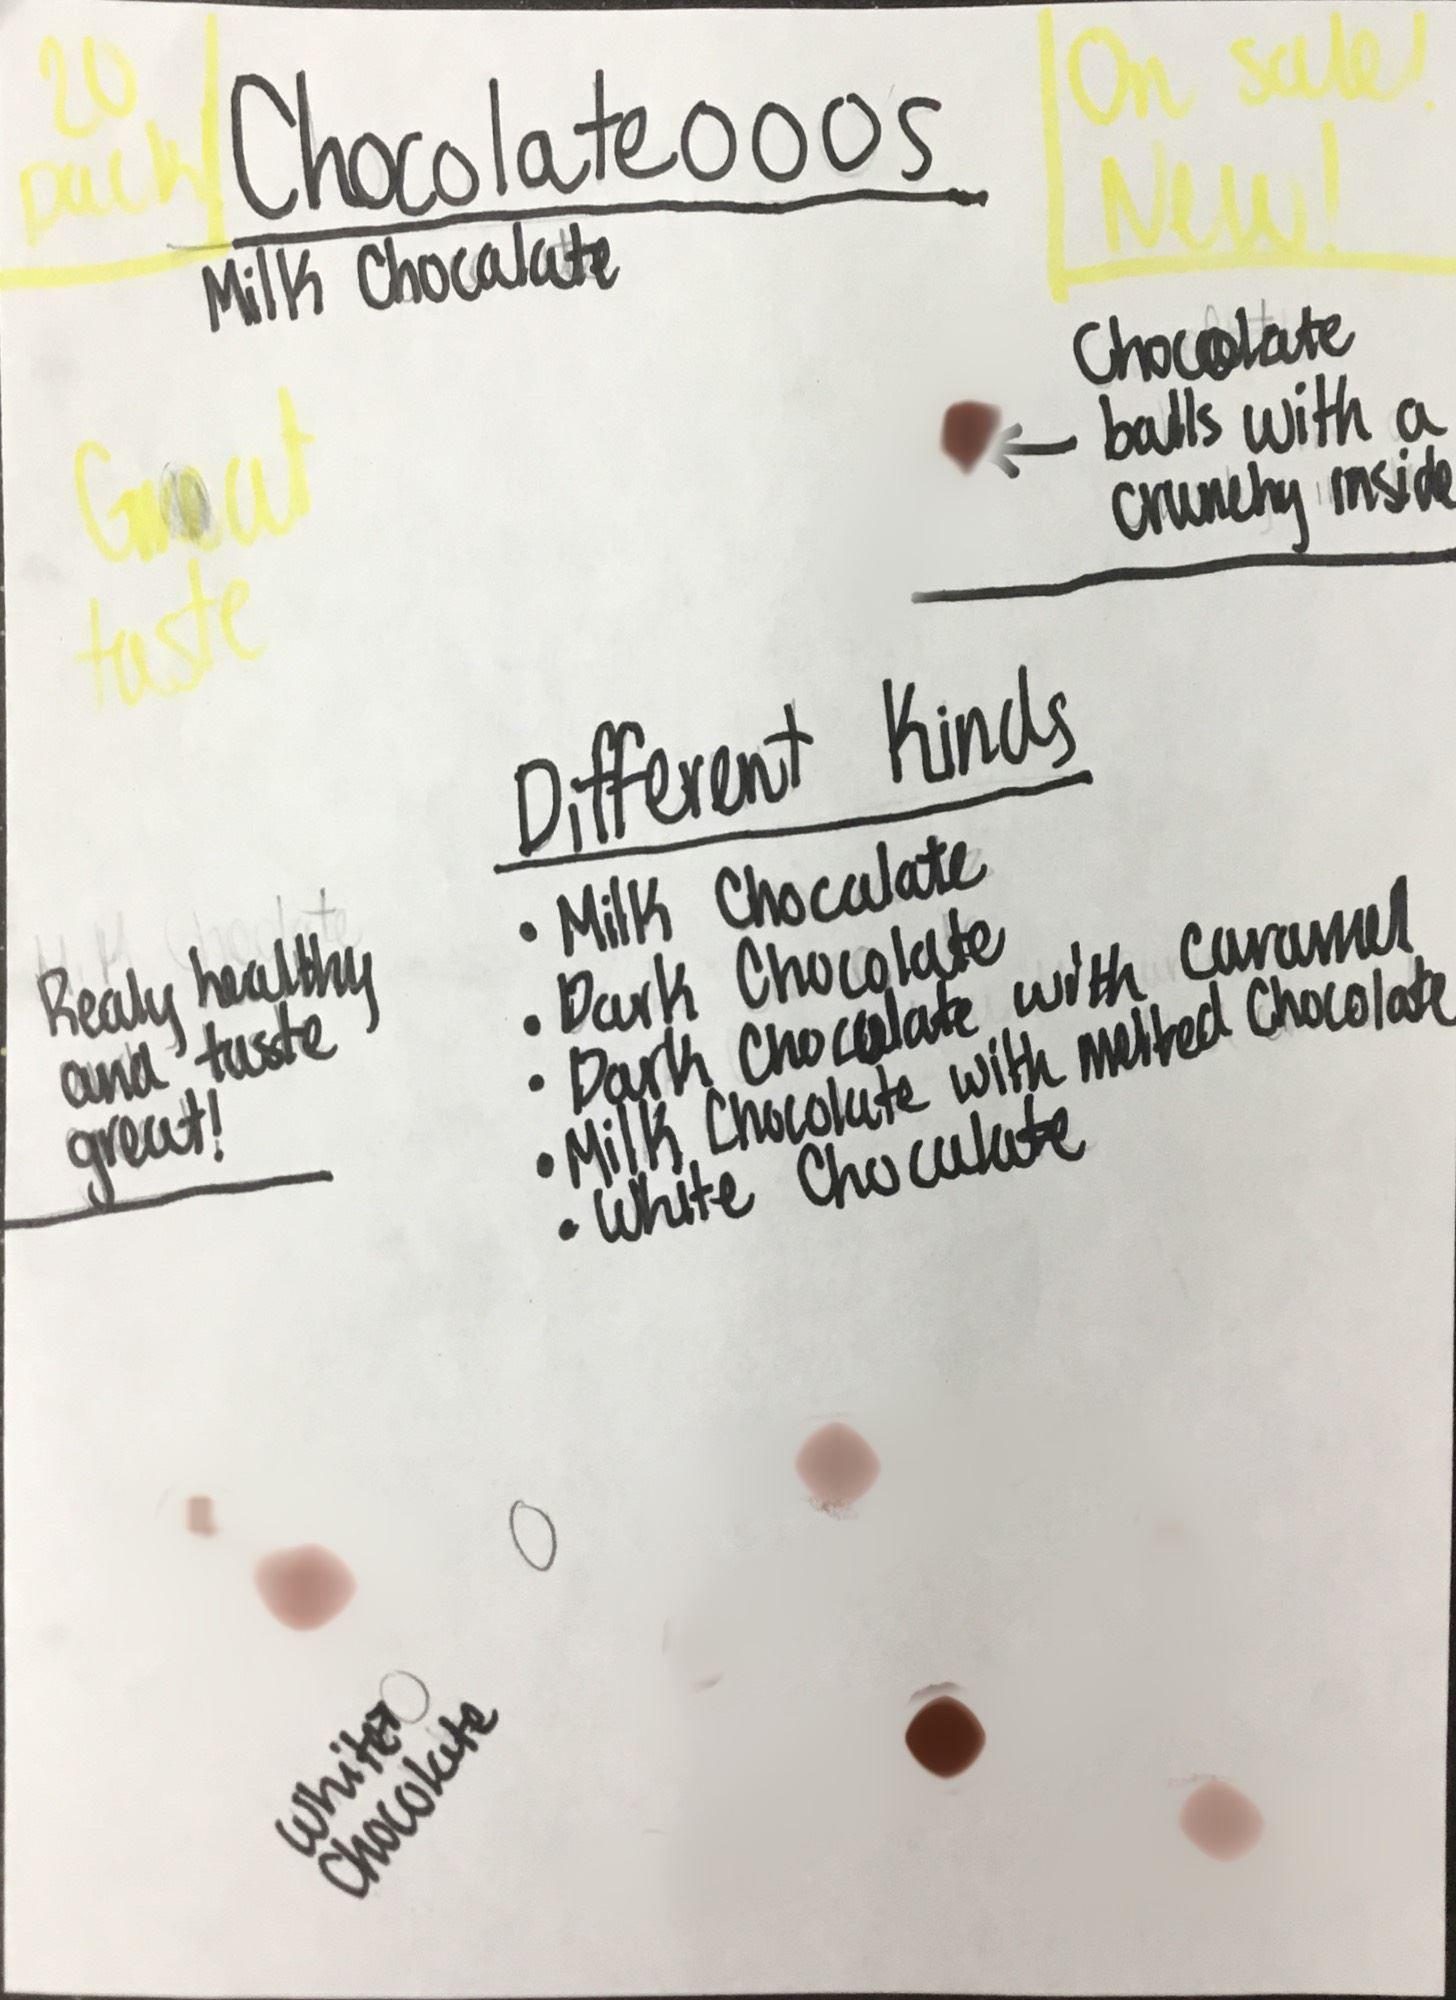 20
pack
Chocolateooos
On sale!
New!
Milk Chocalate
Chocolate
balls with a
crunchy inside
Great
taste
Different Kinds
• Milk Chocalate
• Dark Chocolate
• Dark Chocolate with caramel
• Milk Chocolate with melted Chocolate
• White Chocalate
Realy healthy
and taste
great!
White
Chocolate